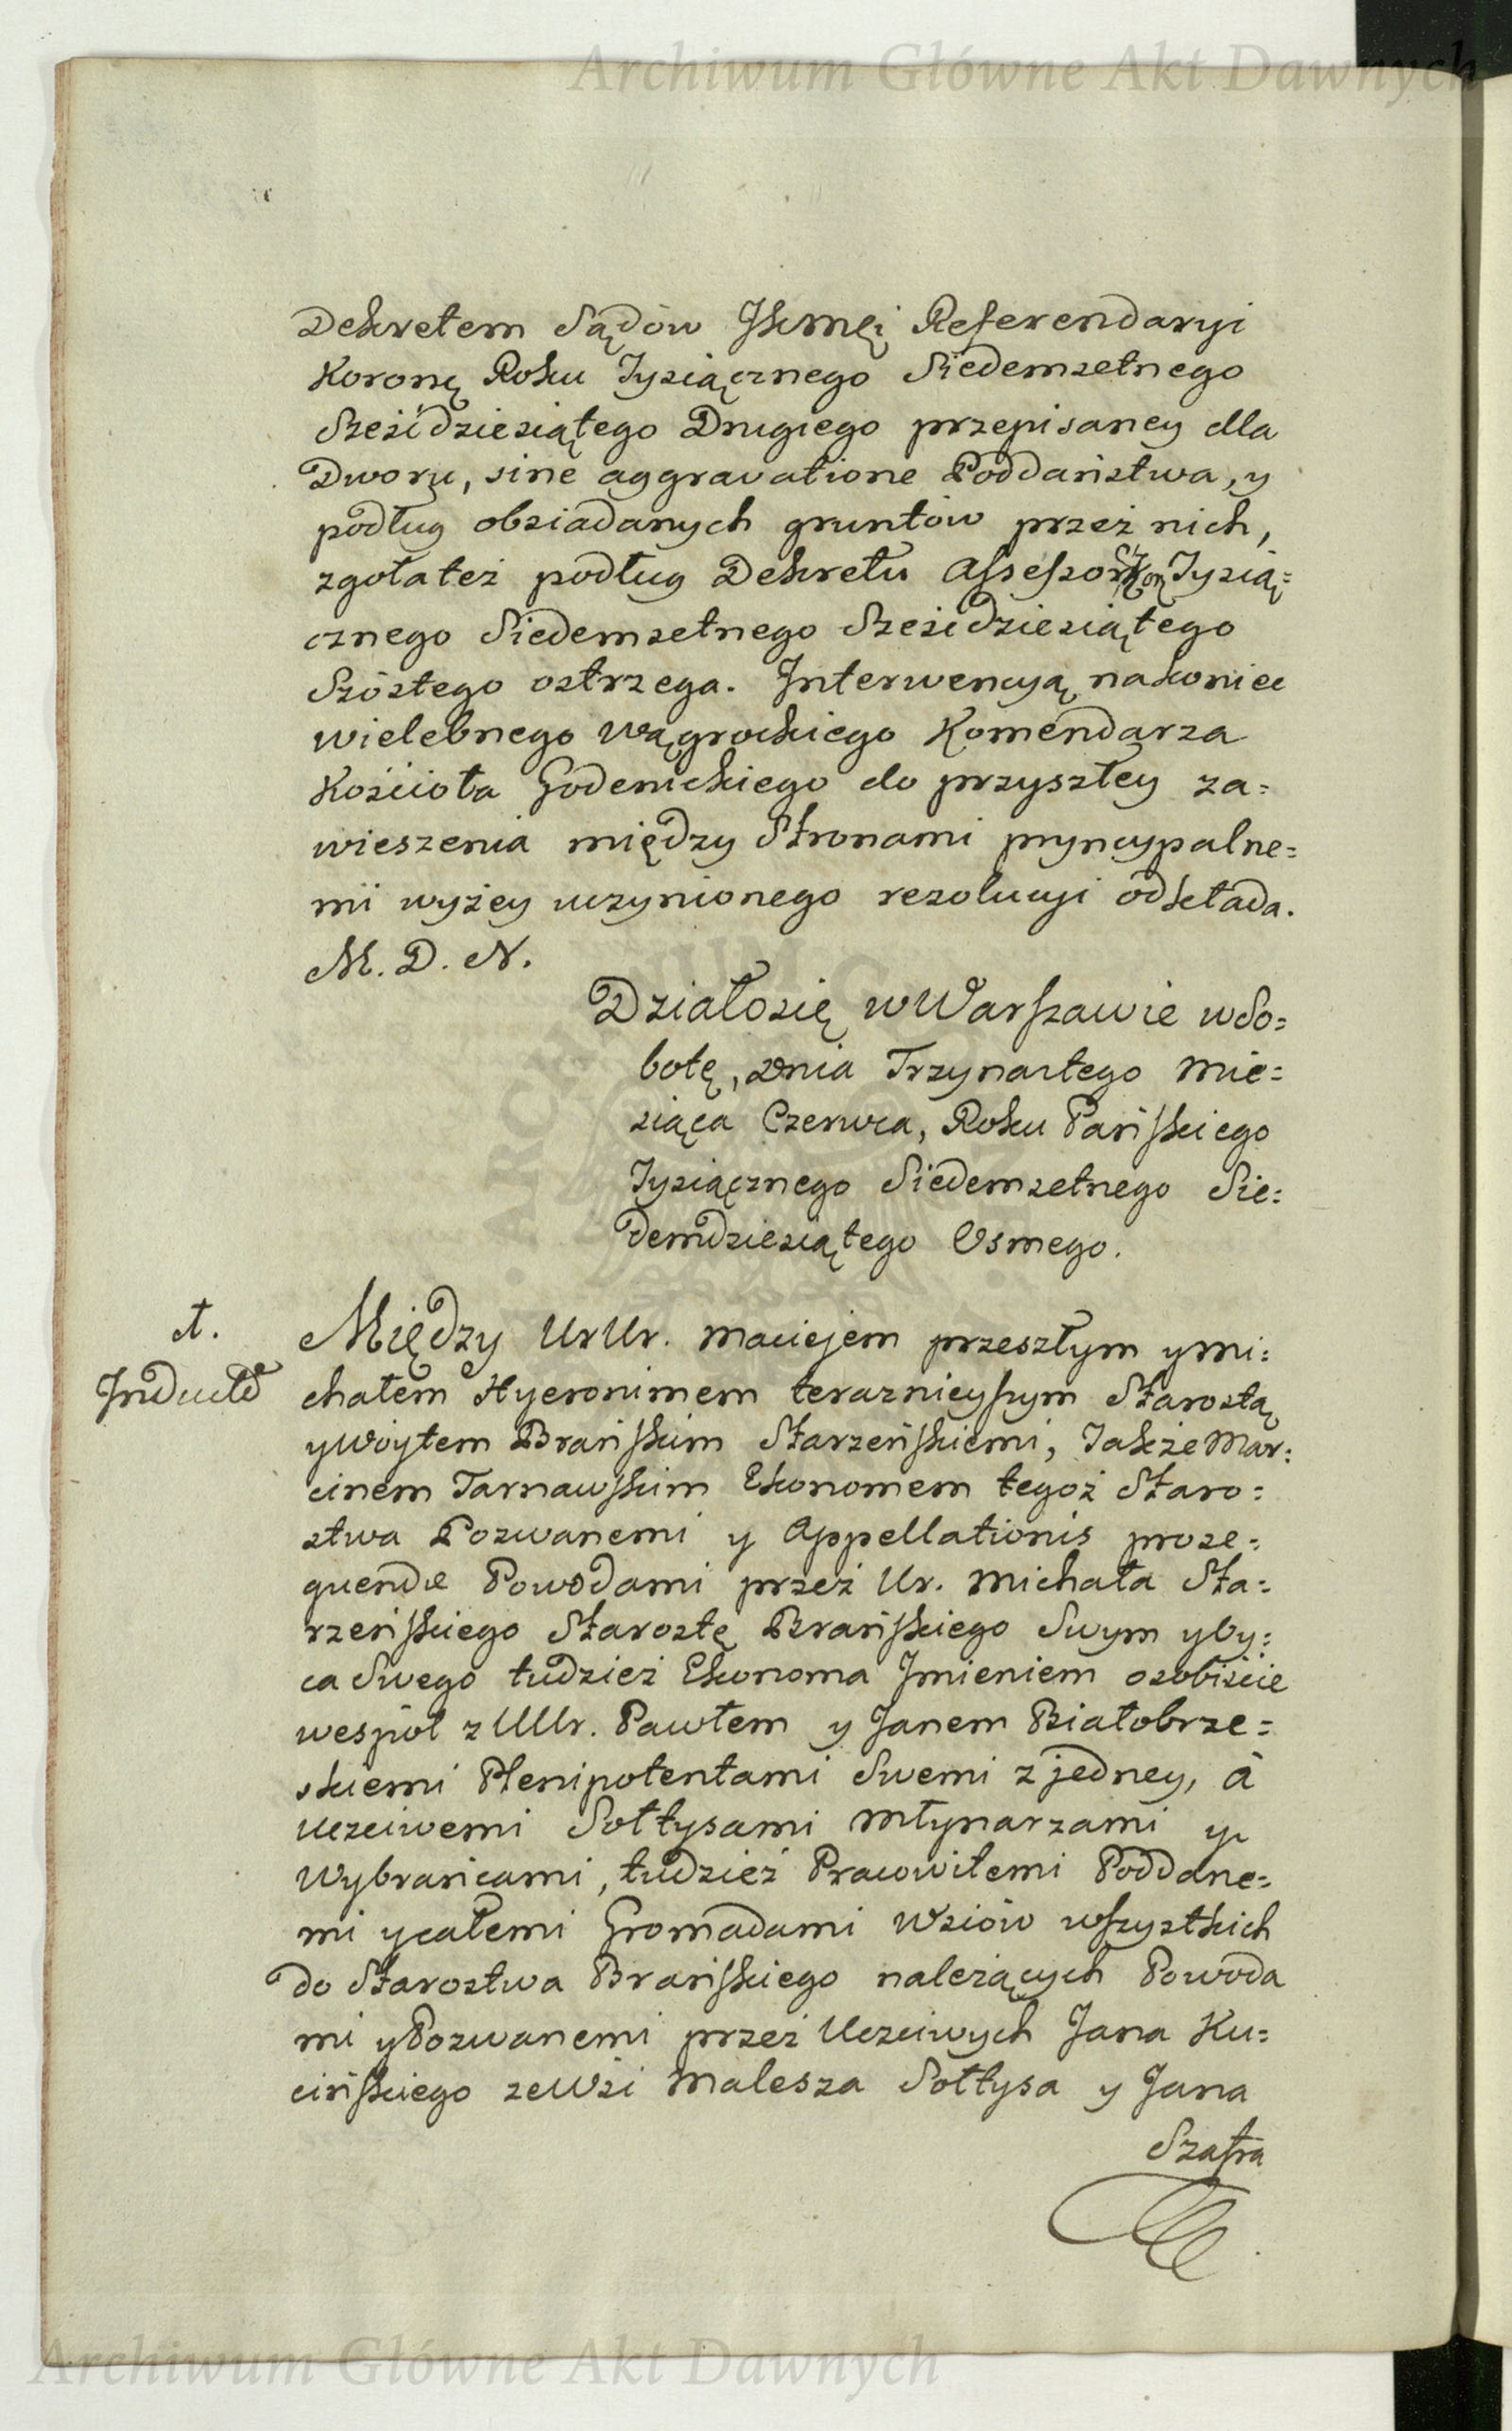 Archiwum Główne Akt Dawnych
Dekretem Sądów JKmći Referendaryi
Koronę Roku Tysiącznego Siedemsetnego
Sześćdziesiątego Drugiego przepisaney dla
Dworu, sine aggravatione Poddaństwa, y
podług obsiadanych gruntów przez nich,
zgoła też podług Dekretu Assessor: Kor: Tysią=
cznego Siedemsetnego Sześćdziesiątego
Szóstego ostrzega. Interwencyą nakoniec
wielebnego Wągrockiego Komendarza
Kościoła Godenickiego do przyszłey za=
wieszenia między Stronami pryncypalne=
mi wyżey uczynionego rezolucyi odkłada.
M. D. N.
Działosię wWarszawie wSo=
botę, Dnia Trzynastego Mie=
siąca Czerwca, Roku Pańskiego
Tysiącznego Siedemsetnego Sie=
demdziesiątego Osmego.
A.
Między UrUr. Maciejem przeszłym yMi=
Induct
chałem Hyeronimem teraznieyszym Starostą
yWoytem Brańskim Starzeńskiemi, Także Mar=
cinem Tarnawskim Ekonomem tegoż Staro=
stwa Pozwanemi y Appellationis prose=
quendæ Powodami przez Ur. Michała Sta=
rzeńskiego Starostę Brańskiego Swym yOy=
ca Swego tudzież Ekonoma Imieniem osobiście
wespół z UUr. Pawłem y Janem Białobrze=
skiemi Plenipotentami Swemi z jedney, à
Uczciwemi Sołtysami Młynarzami y
Wybrańcami, tudzież Pracowitemi Poddane=
mi ycałemi Gromadami Wsiów wszystkich
do Starostwa Brańskiego należących Powoda
mi yPozwanemi przez Uczciwych Jana Ku=
cińskiego zeWsi Malesza Sołtysa y Jana
Szafra
Archiwum Główne Akt Dawnych